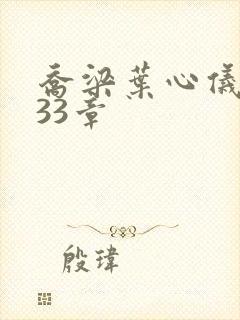 乔梁葉心儀
33章
殷瑋